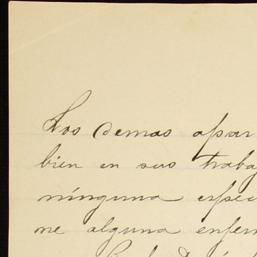 Los demas apar
bien en sus trabaj
ninguna espec
me alguna enfer